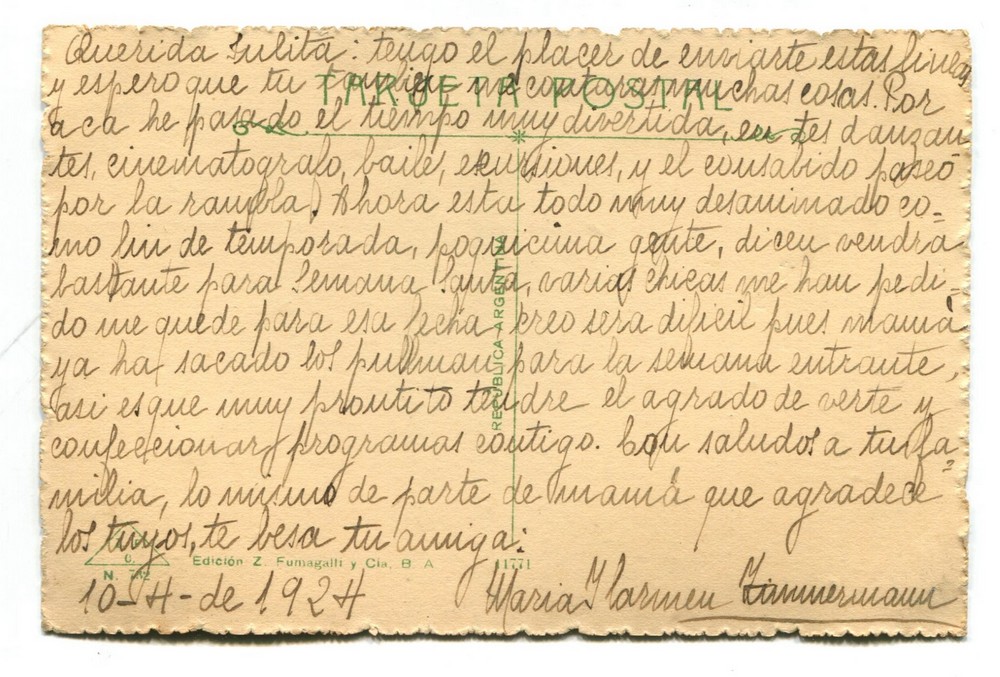 Querida Julita: tengo el placer de enviarte estas lineas
y espero que tu tambien me contaras muchas cosas. Por
TARJETA POSTAL
aca he pasado el tiempo muy divertida, en tes danzan
tes, cinematografo, bailes, escursiones, y el consabido paseo
por la rambla. Ahora esta todo muy desanimado co-
mo fin de temporada, poquicima gente, dicen vendra
bastante para Semana Santa, varias chicas me han pedi-
do me quede para esa fecha creo sera dificil pues mamá
ya ha sacado los pullman para la semana entrante,
asi es que muy prontito tendre el agrado de verte y
confeccionar programas contigo. Con saludos a tu fa=
milia, lo mismo de parte de mamá que agradece
los tuyos, te besa tu amiga:
REPUBLICA ARGENTINA
Edición Z. Fumagalli y Cia. B A 11771
N. 732
10-4-de 1924 Maria Carmen Zimmermann